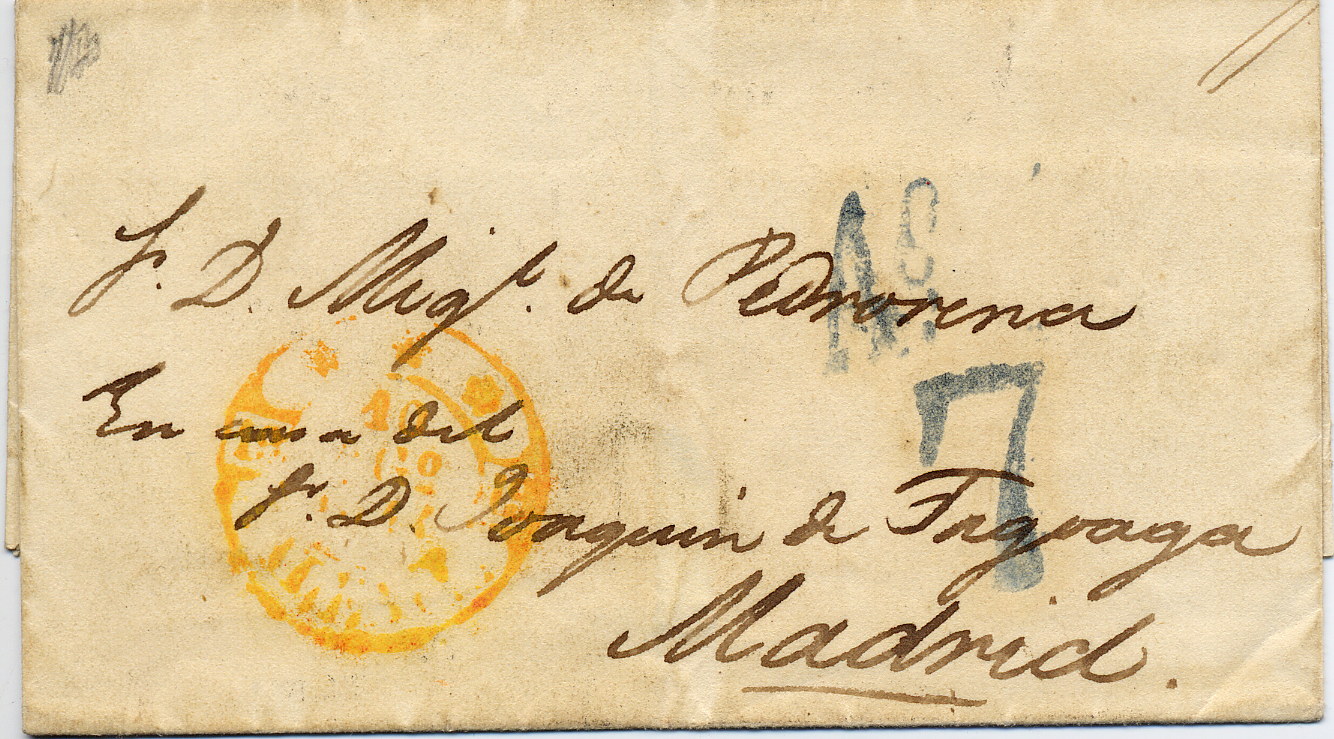 Sr. D. Migl. de Pedrorena
As.
7
En casa del
10
Sr. D. Joaquin de Fagoaga
Madrid.